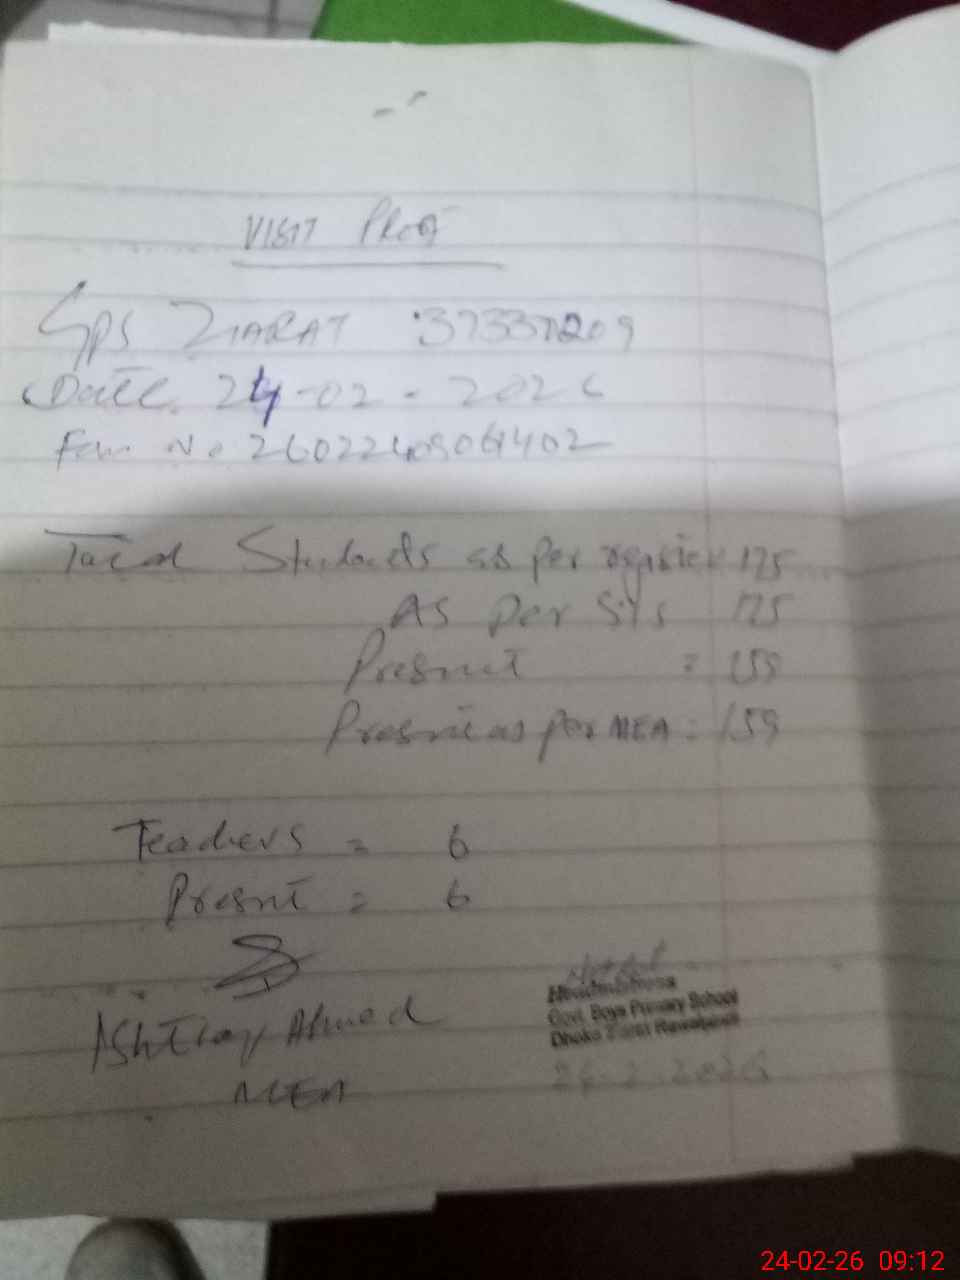 VISIT PROOF
GPS ZIARAT 37330209
Date. 24-02-2026
No 26022409061402
Total Students as per register 175
AS Per SIS 175
Presnt = 159
Presnt as per MEA = 159
Teachers = 6
Presnt = 6
Ahmad
MEA
Govt. Boys Primary School
Dhoke Ziarat Rawalpindi
24-2-2026
24-02-26 09:12